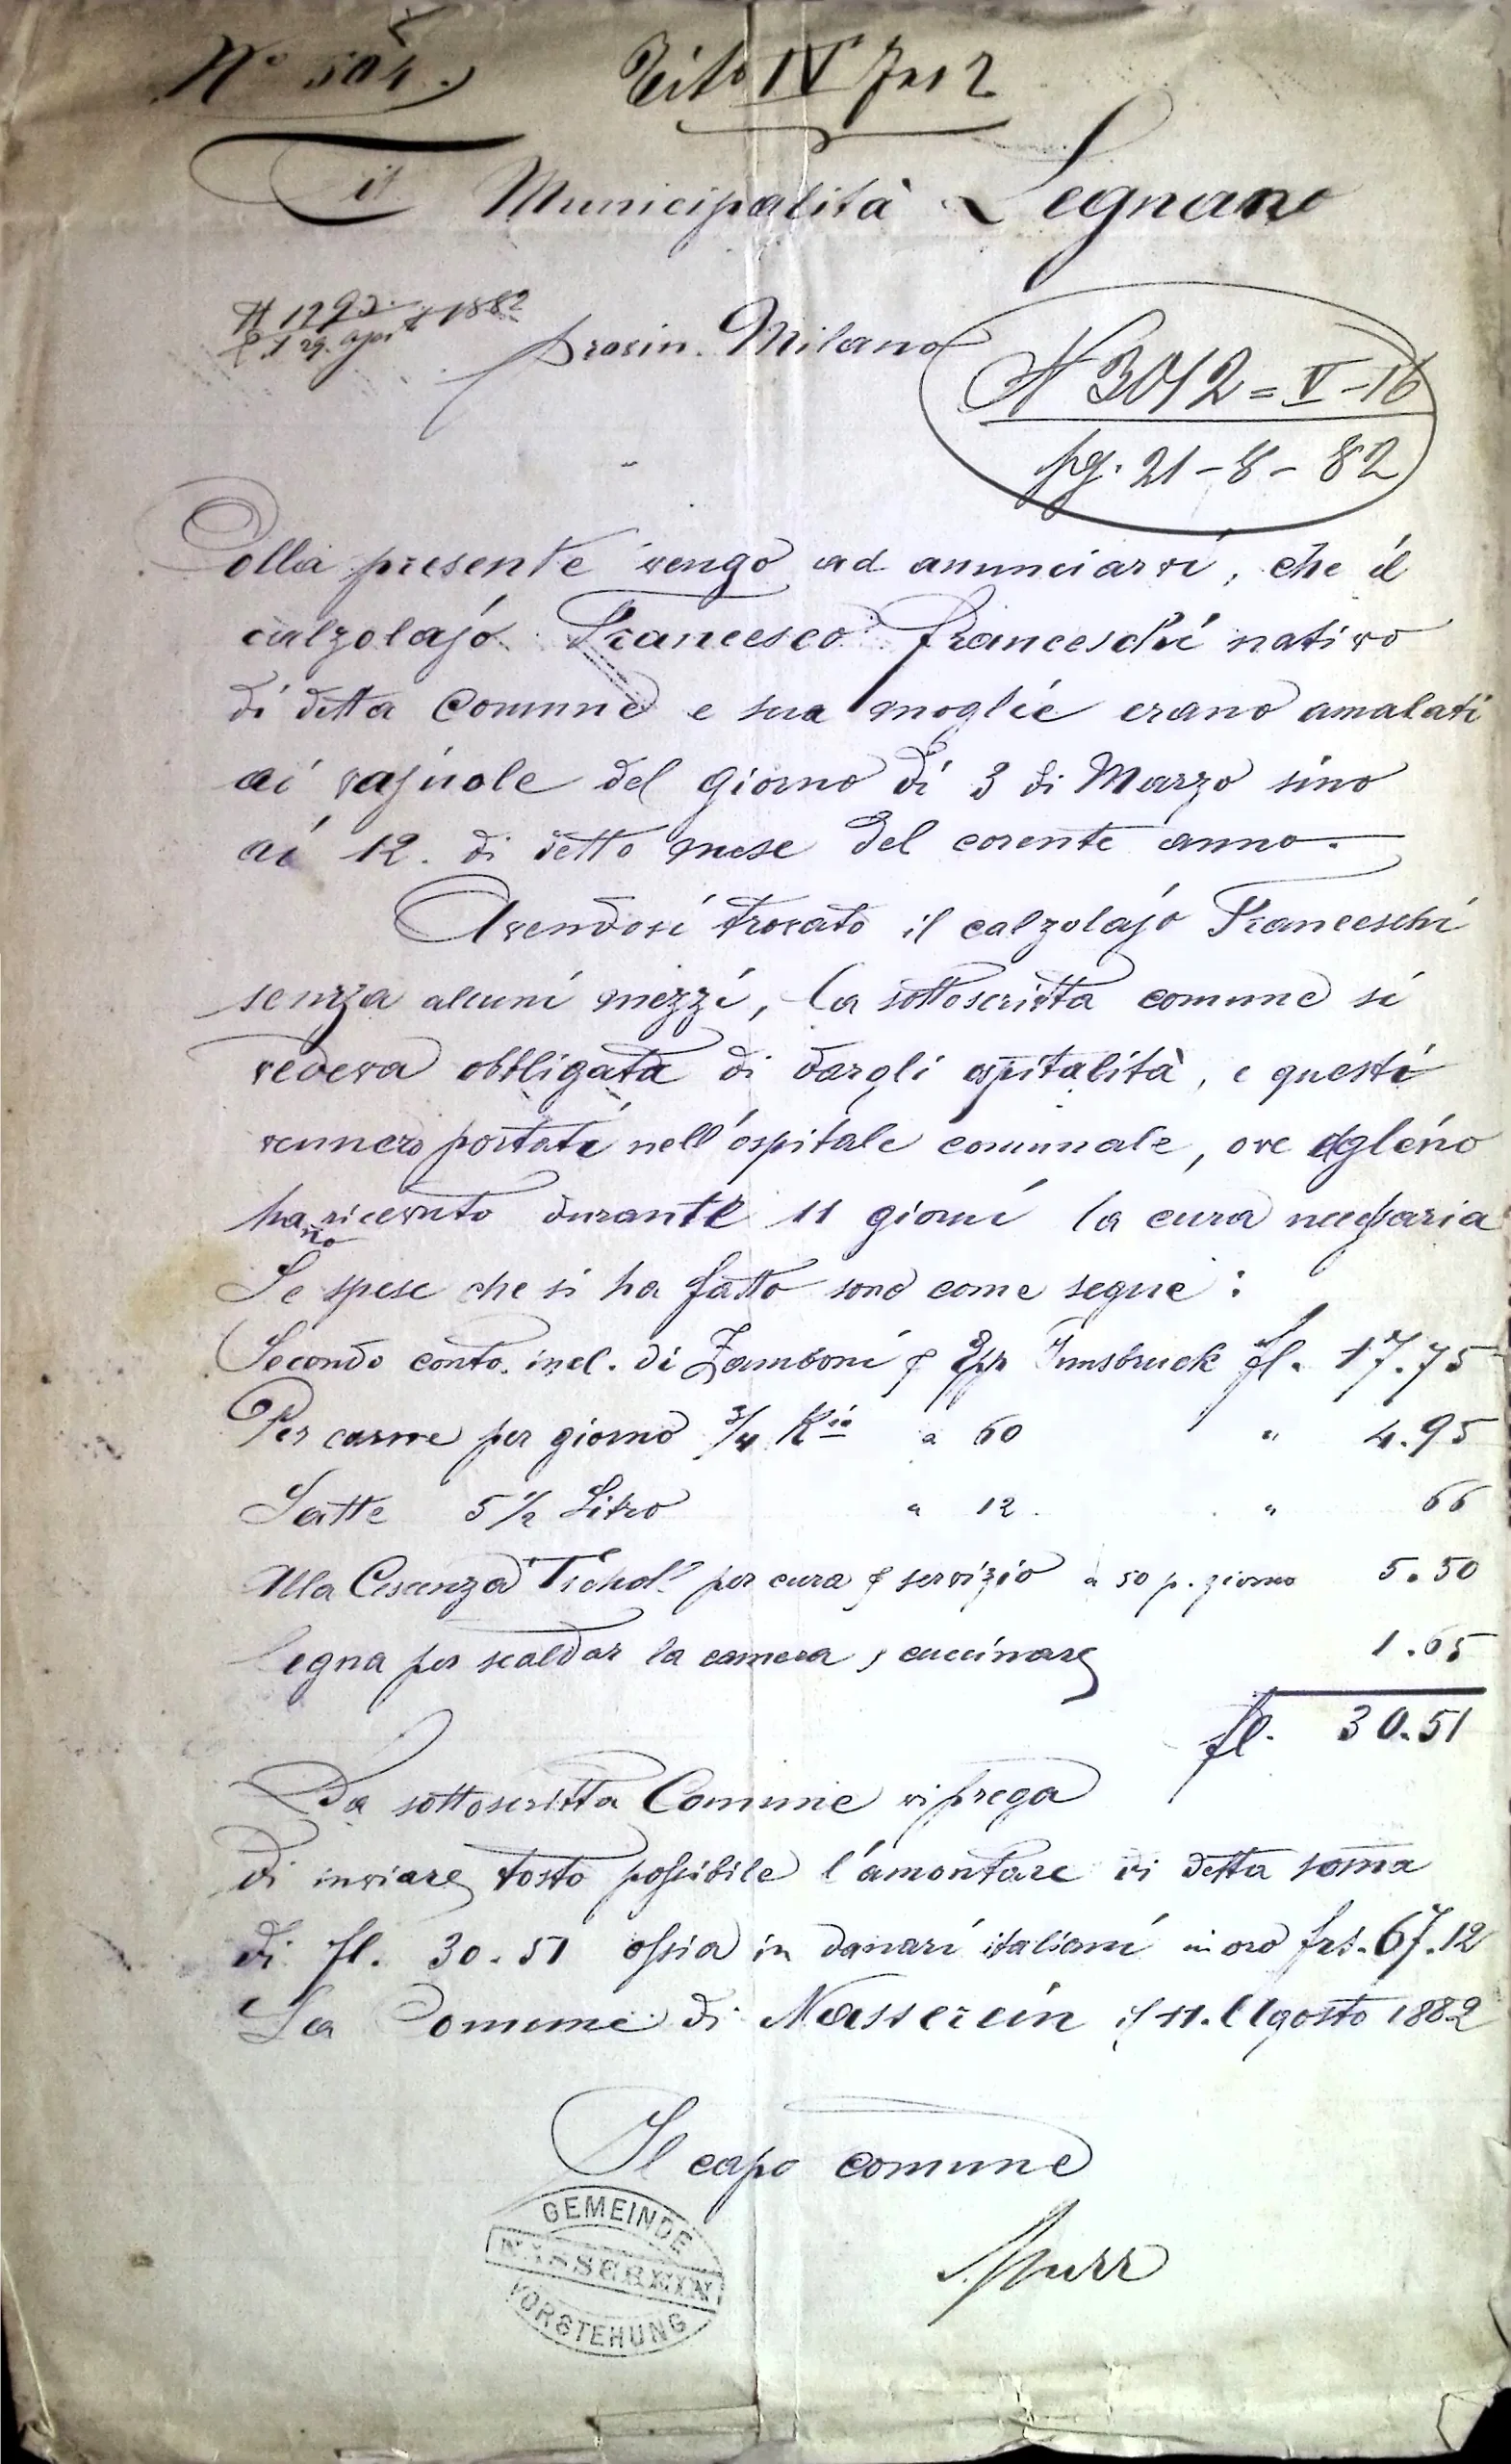 Nº 504.
Tito IV Fas 2
Tit Municipalità Legnano
1882
29. april
Provin. Milano
N 3042 = V - 16
pg. 21 - 8 - 82
Colla presente vengo ad anunciarvi, che il
calzolajo Francesco Franceschi nativo
di detta Comune e sua moglie erano amalati
ai vajuole del giorno di 3 di Marzo sino
ai 12. di detto mese del corente anno.
Avendosi trovato il calzolajo Franceschi
senza alcuni mezzi, la sottoscritta comune si
vedeva obbligata di dargli ospitalità, e questi
vennero portati nell'ospitale comunale, ove eglino
hanno ricevuto durante 11 giorni la cura necessaria
Le spese che si ha fatto sono come segue:
Secondo conto incl. di Zamboni & Innsbruck fl. 17.75
Per carne per giorno 3/4 Kio a 60 " 4.95
Latte 5 1/2 Litro a 12. " 66
Alla per cura & servizio a 50 p. giorno 5.50
legna per scaldar la camera & cuccinare 1.65
fl. 30.51
La sottoscritta Comune vi prega
di inviare tosto possibile l'amontare di detta soma
di fl. 30.51 ossia in danari italiani in oro frs. 67.12
La Comune di Nasserein il 11. Agosto 1882
Il capo comune
GEMEINDE
NASSEREIN
VORSTEHUNG